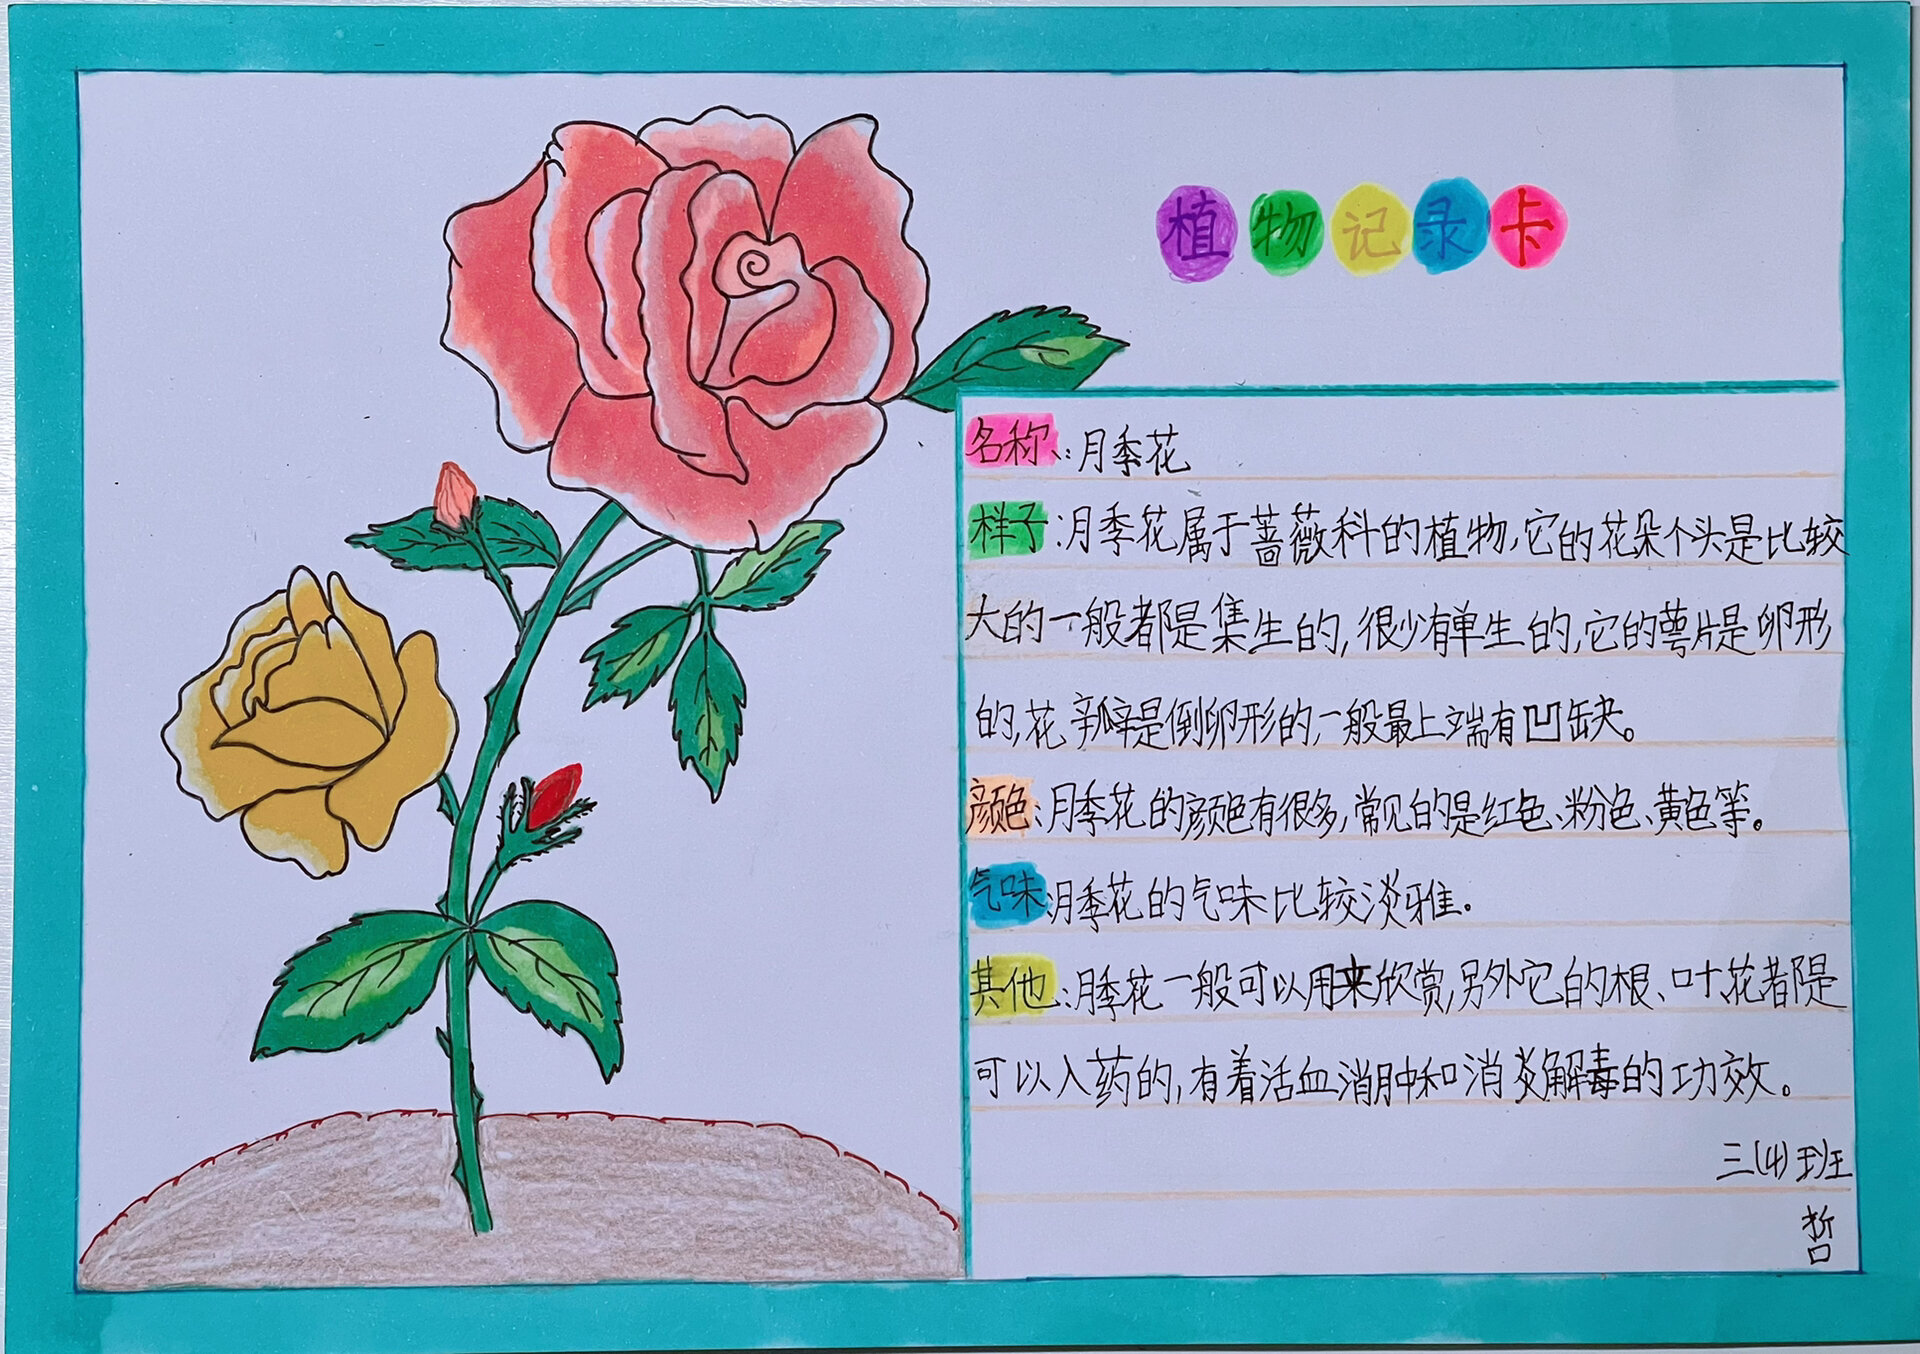 植物记录卡
名称：月季花
样子：月季花属于蔷薇科的植物，它的花朵个头是比较
大的一般都是集生的，很少有单生的，它的萼片是卵形
的，花瓣是倒卵形的，一般最上端有凹缺。
颜色：月季花的颜色有很多，常见的是红色、粉色、黄色等。
气味：月季花的气味比较淡雅。
其他：月季花一般可以用来欣赏，另外它的根、叶、花都是
可以入药的，有着活血消肿和消炎解毒的功效。
三(4)班
哲